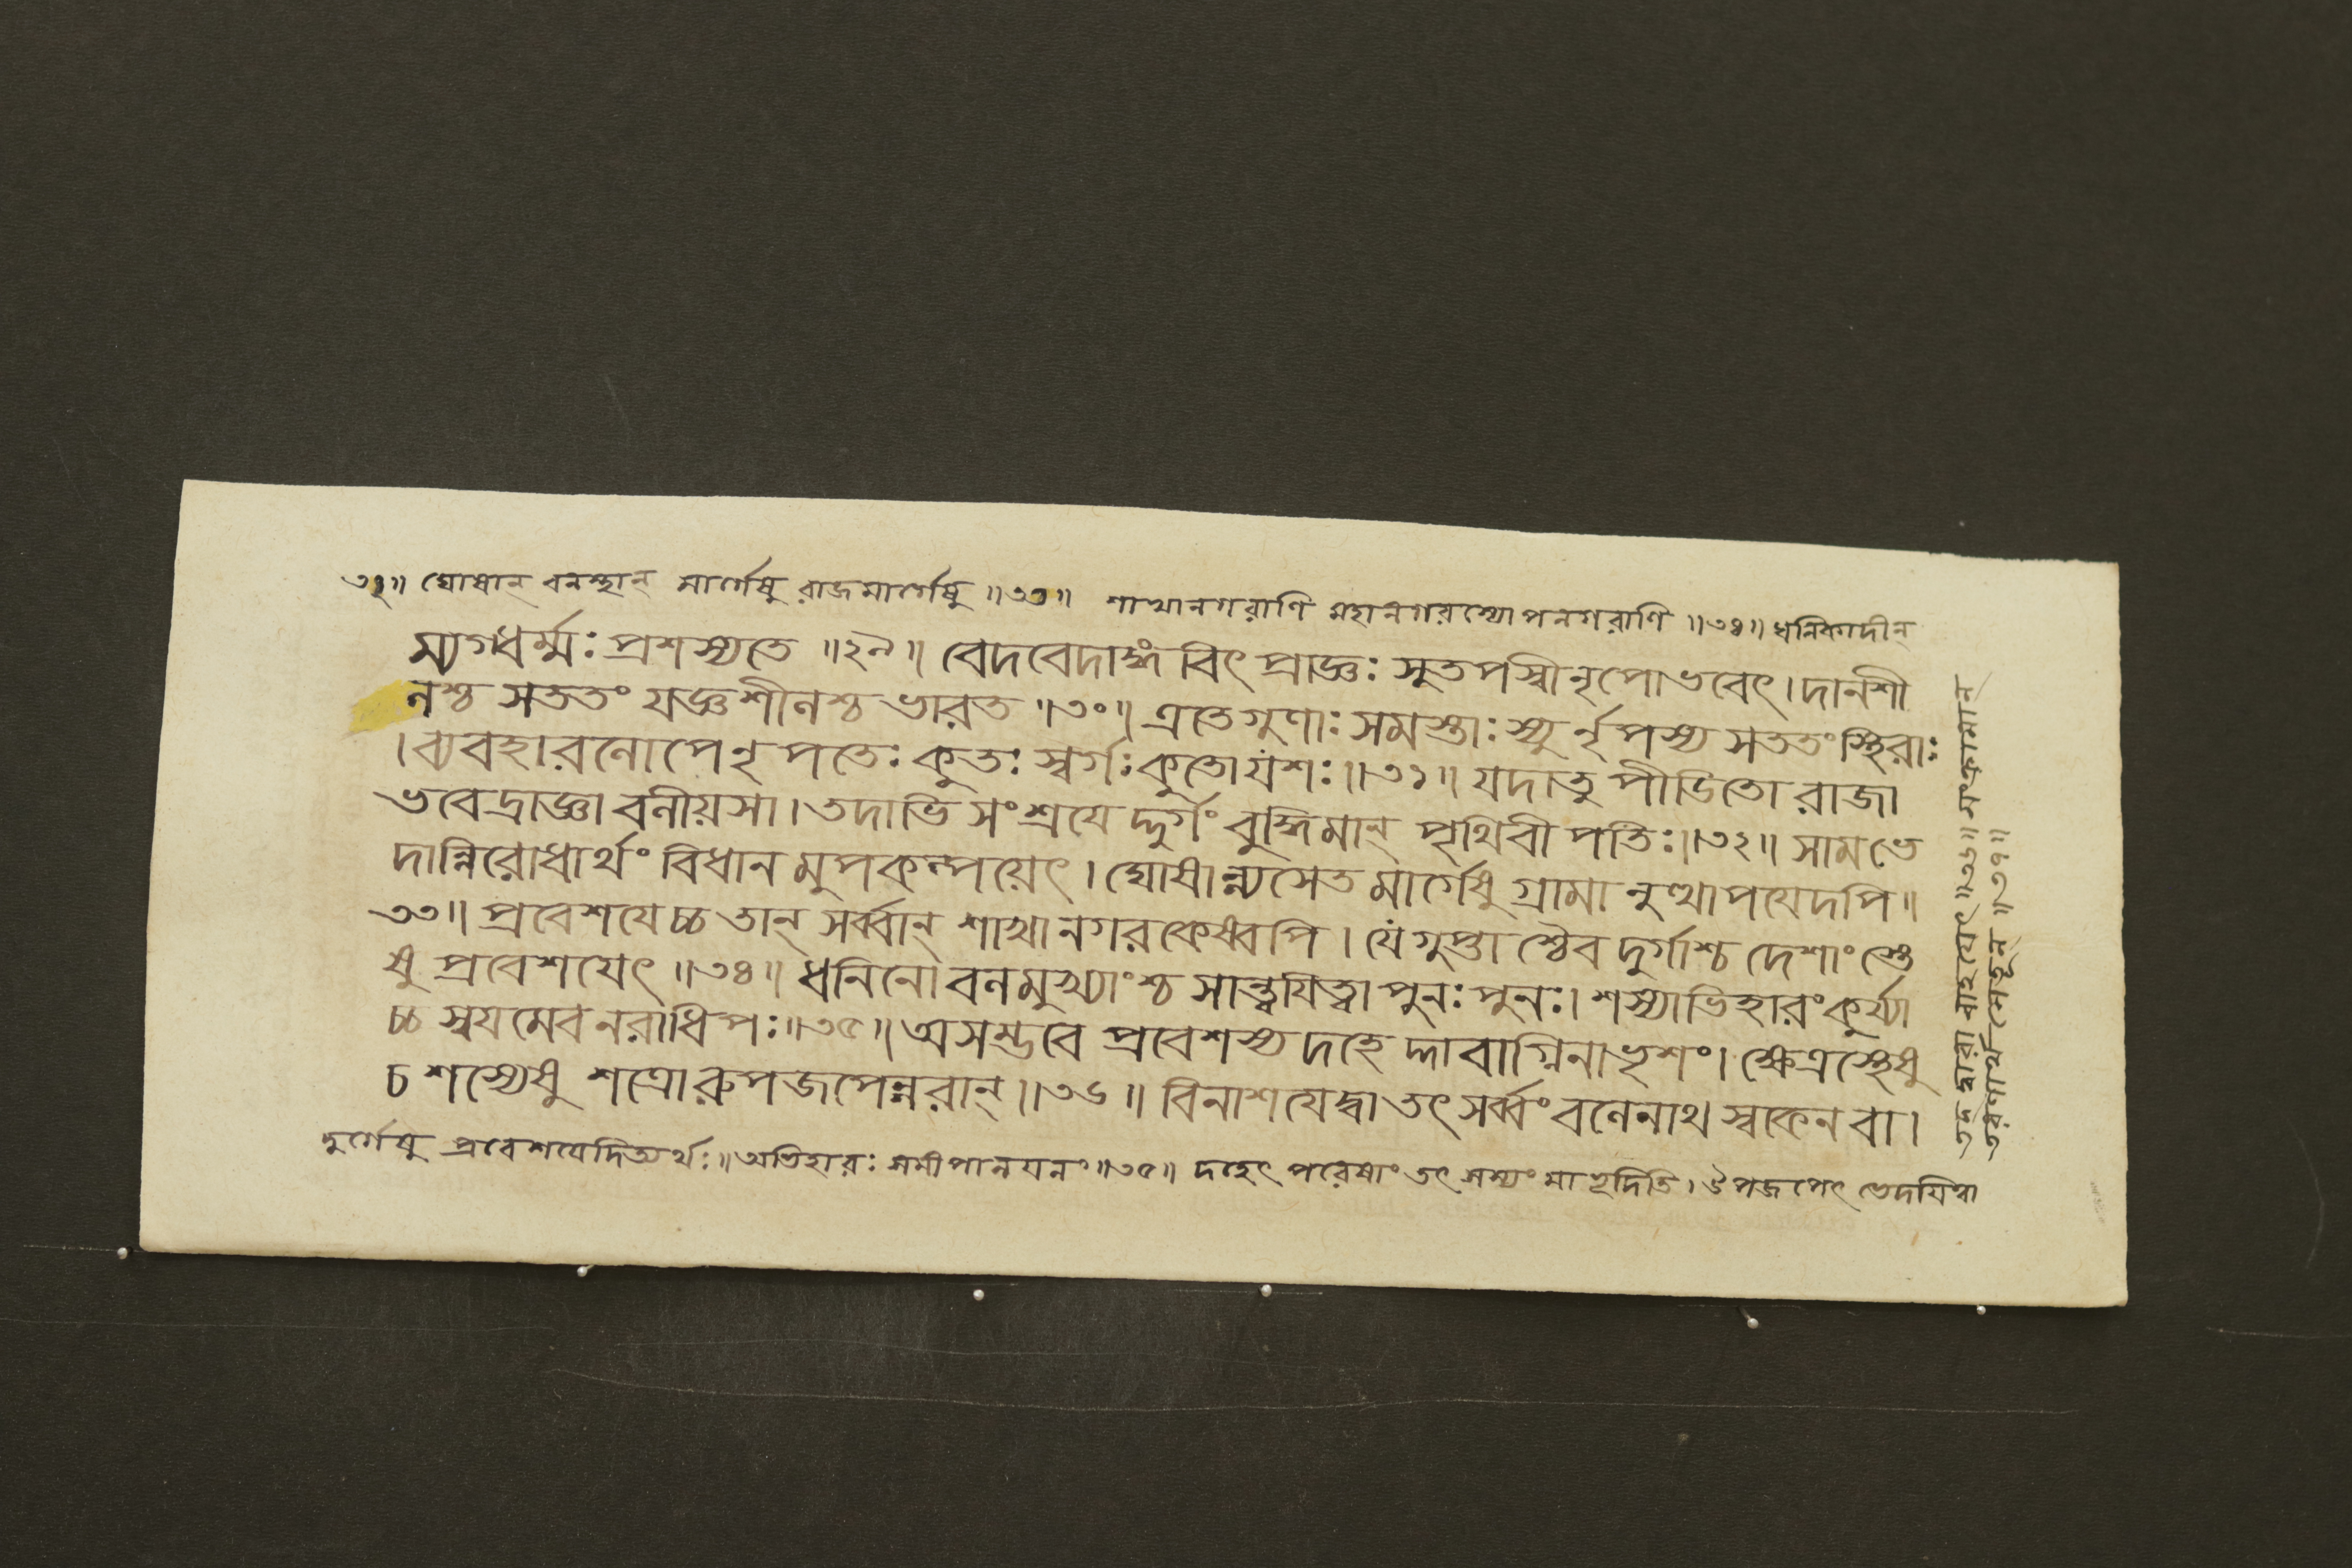 ৩২॥ ঘোষান্ বনস্থান্ মার্গেষু রাজমার্গেষু ॥৩৩॥ শাখানগরাণি মহানগরস্যোপনগরাণি ॥৩৪॥ ধনিকাদীন্
ম্যগধর্ম্মঃ প্রশস্যতে ॥২৯॥ বেদবেদাঙ্গ বিৎ প্রাজ্ঞঃ সুতপস্বীনৃপোভবেৎ। দানশী
লশ্চ সততং যজ্ঞশীলশ্চ ভারত ॥৩০॥ এতেগুণাঃ সমস্তাঃ স্যু র্নৃপস্য সততংস্থিরাঃ
। ব্যবহারলোপেনৃ পতেঃ কুতঃ স্বর্গঃ কুতোযশঃ ॥৩১॥ যদাতু পীডিতো রাজা
ভবেদ্রাজ্ঞা বলীয়সা। তদাভি সংশ্রযে দ্দুর্গং বুদ্ধিমান্ পৃথিবী পতিঃ ॥৩২॥ সামভে
দান্নিরোধার্থং বিধান মুপকল্পয়েৎ। ঘোষান্ন্যসেত মার্গেষু গ্রামা নুত্থাপযেদপি॥
৩৩॥ প্রবেশযেচ্চ তান্ সর্ব্বান্ শাখানগরকেষ্বপি। যে গুপ্তা শ্চৈব দুর্গাশ্চ দেশাংস্তে
ষু প্রবেশযেৎ ॥৩৪॥ ধনিনো বলমুখ্যাংশ্চ সান্ত্বযিত্বা পুনঃ পুনঃ। শস্যাভিহারংকুর্য্যা
চ্চ স্বযমেব নরাধিপঃ ॥৩৫॥ অসম্ভবে প্রবেশস্য দহে দ্দাবাগ্নিনাভৃশং। ক্ষেত্রস্থেষু
চ শস্যেষু শত্রোরুপজপেন্নরান্ ॥৩৬॥ বিনাশযেদ্বা তৎ সর্ব্বং বলেনাথ স্বকেন বা।
দুর্গেষু প্রবেশযেদিত্যর্থঃ॥ অভিহারঃ সমীপানযনং ॥৩৫॥ দহেৎ পরেষাং তৎ শস্যং মাভূদিতি। উপজপেৎ ভেদযিত্বা
তদ্ দ্বারা দাহযেৎ ॥৩৬॥ সংক্রামান্
তরণার্থসেতূন্ ॥৩৭॥